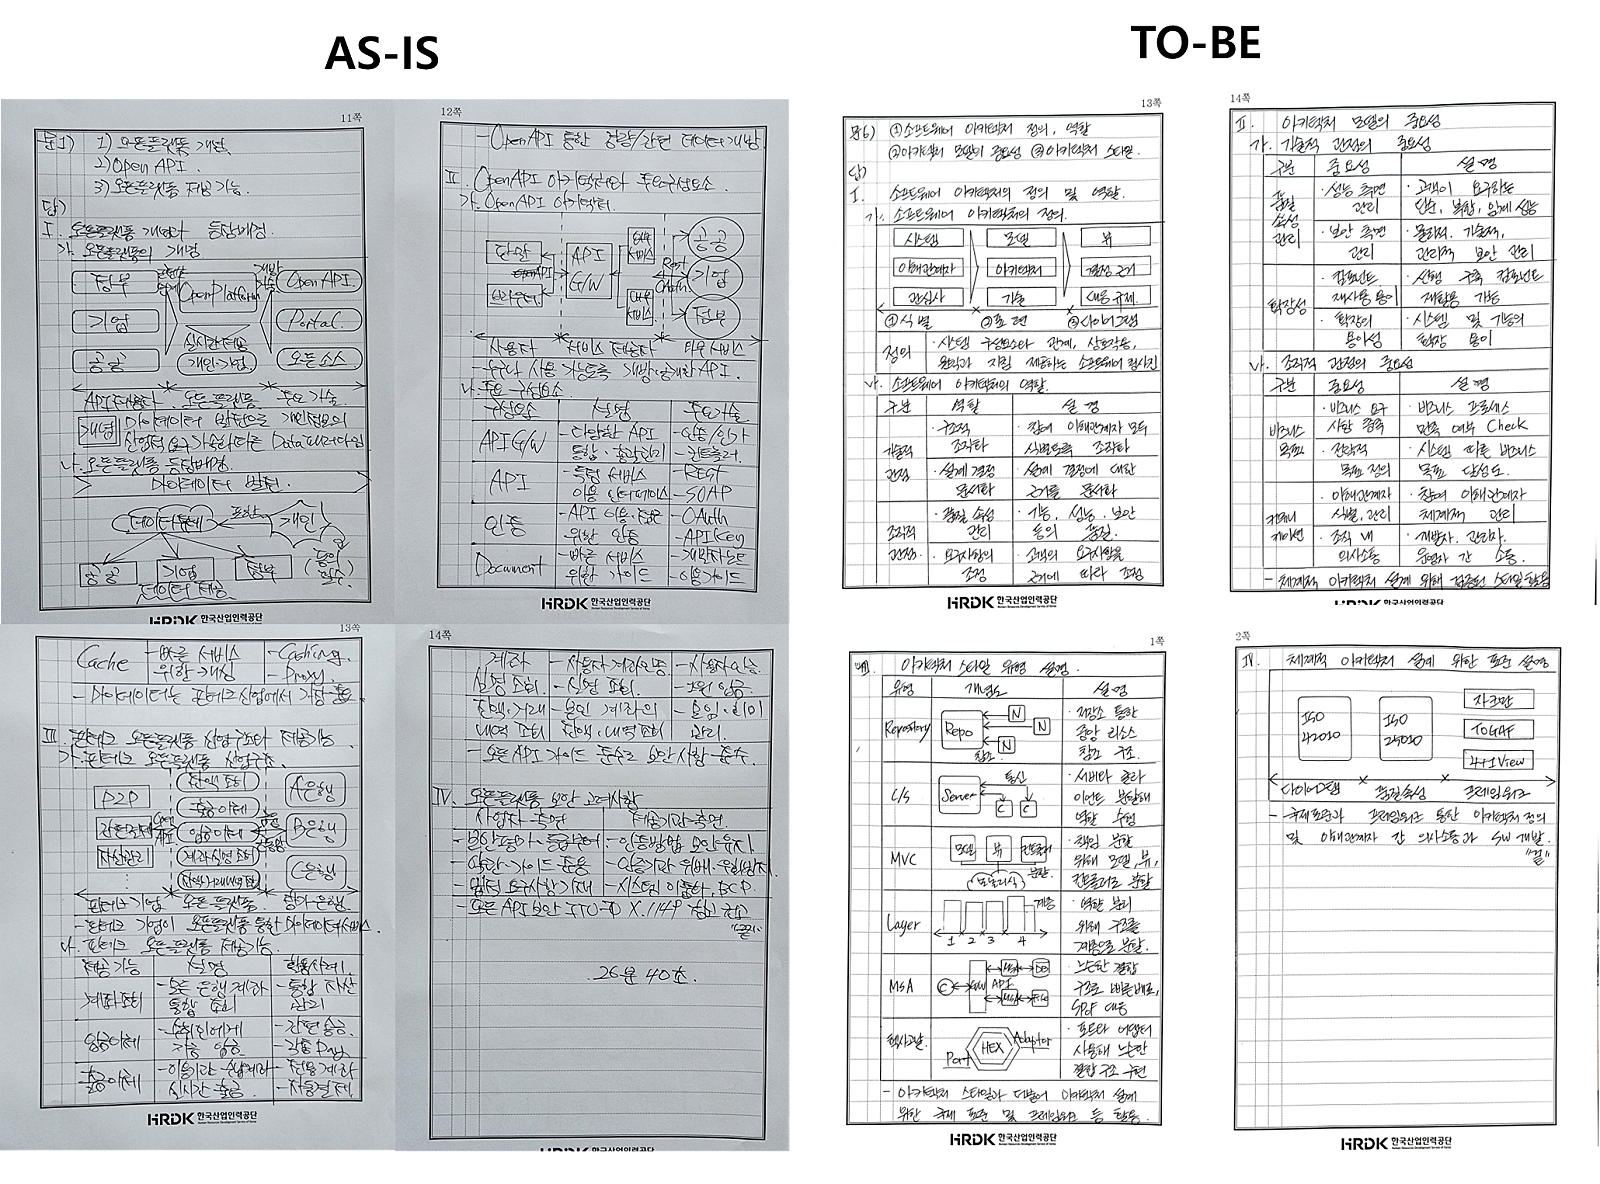 AS-IS
TO-BE
11쪽
문1) 1) 오픈플랫폼 개념
2) Open API
3) 오픈플랫폼 제공 기능.
답)
I. 오픈플랫폼 개념과 등장배경
가. 오픈플랫폼의 개념
정부
OpenPlatform
OpenAPI.
기업
Portal.
공공
개인·기업
오픈소스
API제공자
오픈플랫폼
주요 기술
개념
나. 오픈플랫폼 등장배경.
마이데이터 발전.
개인
공공
기업
정부
데이터 제공
HRDK 한국산업인력공단
12쪽
- OpenAPI 통한 경량/간편 데이터 개방
II. OpenAPI 아키텍처와 주요구성요소
가. OpenAPI 아키텍처.
단말
브라우저
API
G/W
공공
기업
정부
사용자
서비스 제공자
- 누구나 사용 가능토록 개방·공개한 API.
나. 주요 구성요소
구성요소 설명 주요기술
API G/W - 다양한 API - 인증/인가
통합·출력관리 - 컨트롤러.
API - 특정 서비스 - REST
이용 인터페이스 - SOAP
인증 - API 이용·접근 - OAuth
위한 인증 - API Key
Document - 빠른 서비스 - 개발자노트
위한 가이드 - 이용가이드
HRDK 한국산업인력공단
13쪽
Cache - 빠른 서비스 - Caching.
위한 캐싱 - Proxy.
- 마이데이터는 핀테크 산업에서 가장 중요
III. 핀테크 오픈플랫폼 산업구조와 제공기능
가. 핀테크 오픈플랫폼 산업구조.
P2P
간편결제
자산관리
잔액 조회
출금이체
입금이체
계좌실명 조회
A은행
B은행
C은행
핀테크 기업
오픈플랫폼.
참가은행.
- 핀테크 기업이 오픈플랫폼 통한 마이데이터 서비스.
나. 핀테크 오픈플랫폼 제공기능.
제공기능 설명 활용사례.
계좌조회 - 모든 은행 계좌 - 통합 자산
통합 조회 관리
입금이체 - 수취인에게 - 간편 송금.
자금 입금. - 각종 Pay.
출금이체
실시간 출금 - 자동결제.
HRDK 한국산업인력공단
14쪽
계좌 - 사용자 계좌인증 - 사용자인증.
실명 조회. - 실명 조회.
잔액·거래 - 본인 계좌의
내역 조회 잔액·내역 조회 관리.
- 오픈API 가이드 준수로 보안사항 준수
IV. 오픈플랫폼 보안 고려사항
사업자 측면 제공기관 측면.
- 약관·가이드 준용
- 오픈 API 보안 ITU-T X.1149 참고 권고
"끝"
26분 40초.
HRDK 한국산업인력공단
13쪽
문6) ①소프트웨어 아키텍처 정의, 역할
②아키텍처 모델의 중요성 ③아키텍처 스타일.
답)
I. 소프트웨어 아키텍처의 정의 및 역할.
가. 소프트웨어 아키텍처의 정의.
시스템 모델 뷰
이해관계자 아키텍처 결정 근거
관심사 기술 대응 규제.
①식별 ②표현 ③다이어그램
정의 · 시스템 구성요소와 관계, 상호작용,
원칙과 지침 제공하는 소프트웨어 청사진
나. 소프트웨어 아키텍처의 역할.
구분 역할 설명
기술적 관점 · 구조적 조직화 · 참여 이해관계자 모두 식별토록 조직화
· 설계 결정 문서화 · 설계 결정에 대한 근거를 문서화
조직적 관점 · 품질 속성 관리 · 기능, 성능, 보안 등의 품질.
· 요구사항의 조정 · 고객의 요구사항을 근거에 따라 조정
HRDK 한국산업인력공단
14쪽
II. 아키텍처 모델의 중요성
가. 기술적 관점의 중요성
구분 중요성 설명
품질 속성 관리 · 성능 측면 관리 · 고객이 요구하는 단순, 복합, 임계 성능
· 보안 측면 관리 · 물리적, 기술적, 관리적 보안 관리
확장성 · 컴포넌트 재사용 용이 · 선행 구축 컴포넌트 재활용 가능
· 확장의 용이성 · 시스템 및 기능의 확장 용이
나. 조직적 관점의 중요성
구분 중요성 설명
비즈니스 목표 · 비즈니스 요구 사항 충족 · 비즈니스 프로세스 만족 여부 Check
· 전략적 목표 정의 · 시스템 따른 비즈니스 목표 달성도.
커뮤니케이션 · 이해관계자 식별, 관리 · 참여 이해관계자 체계적 관리
· 조직 내 의사소통 · 개발자, 관리자, 운영자 간 소통.
- 체계적 아키텍처 설계 위해 검증된 스타일 활용
HRDK 한국산업인력공단
1쪽
III. 아키텍처 스타일 유형 설명.
유형 개념도 설명
Repository Repo N N N 참조 · 저장소 통한 중앙 리소스 참조 구조.
C/S Server 통신 C C · 서버와 클라이언트 분할해 역할 수행
MVC 모델 뷰 컨트롤러 분할 · 책임 분할 위해 모델, 뷰, 컨트롤러로 분할
Layer 1 2 3 4 계층 · 역할 분리 위해 구조를 계층으로 분할.
MSA API · 느슨한 결합 구조로 빠른배포, SPOF 대응
헥사고날. HEX Port Adaptor · 포트와 어댑터 사용해 느슨한 결합 구조 구현
- 아키텍처 스타일과 더불어 아키텍처 설계
위한 국제 표준 및 프레임워크 등 활용.
HRDK 한국산업인력공단
2쪽
IV. 체계적 아키텍처 설계 위한 표준 설명
ISO 42010
ISO 25010
자크만
TOGAF
4+1 View
다이어그램 품질속성 프레임워크
- 국제표준과 프레임워크 통한 아키텍처 정의
및 이해관계자 간 의사소통과 SW 개발.
"끝"
HRDK 한국산업인력공단